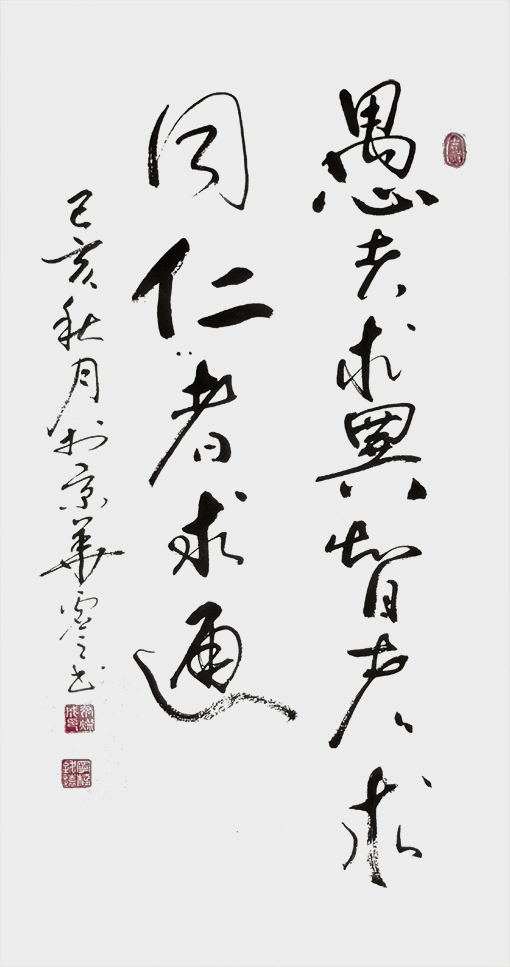 愚者求異智者求
同仁者求通
己亥秋月於京華书